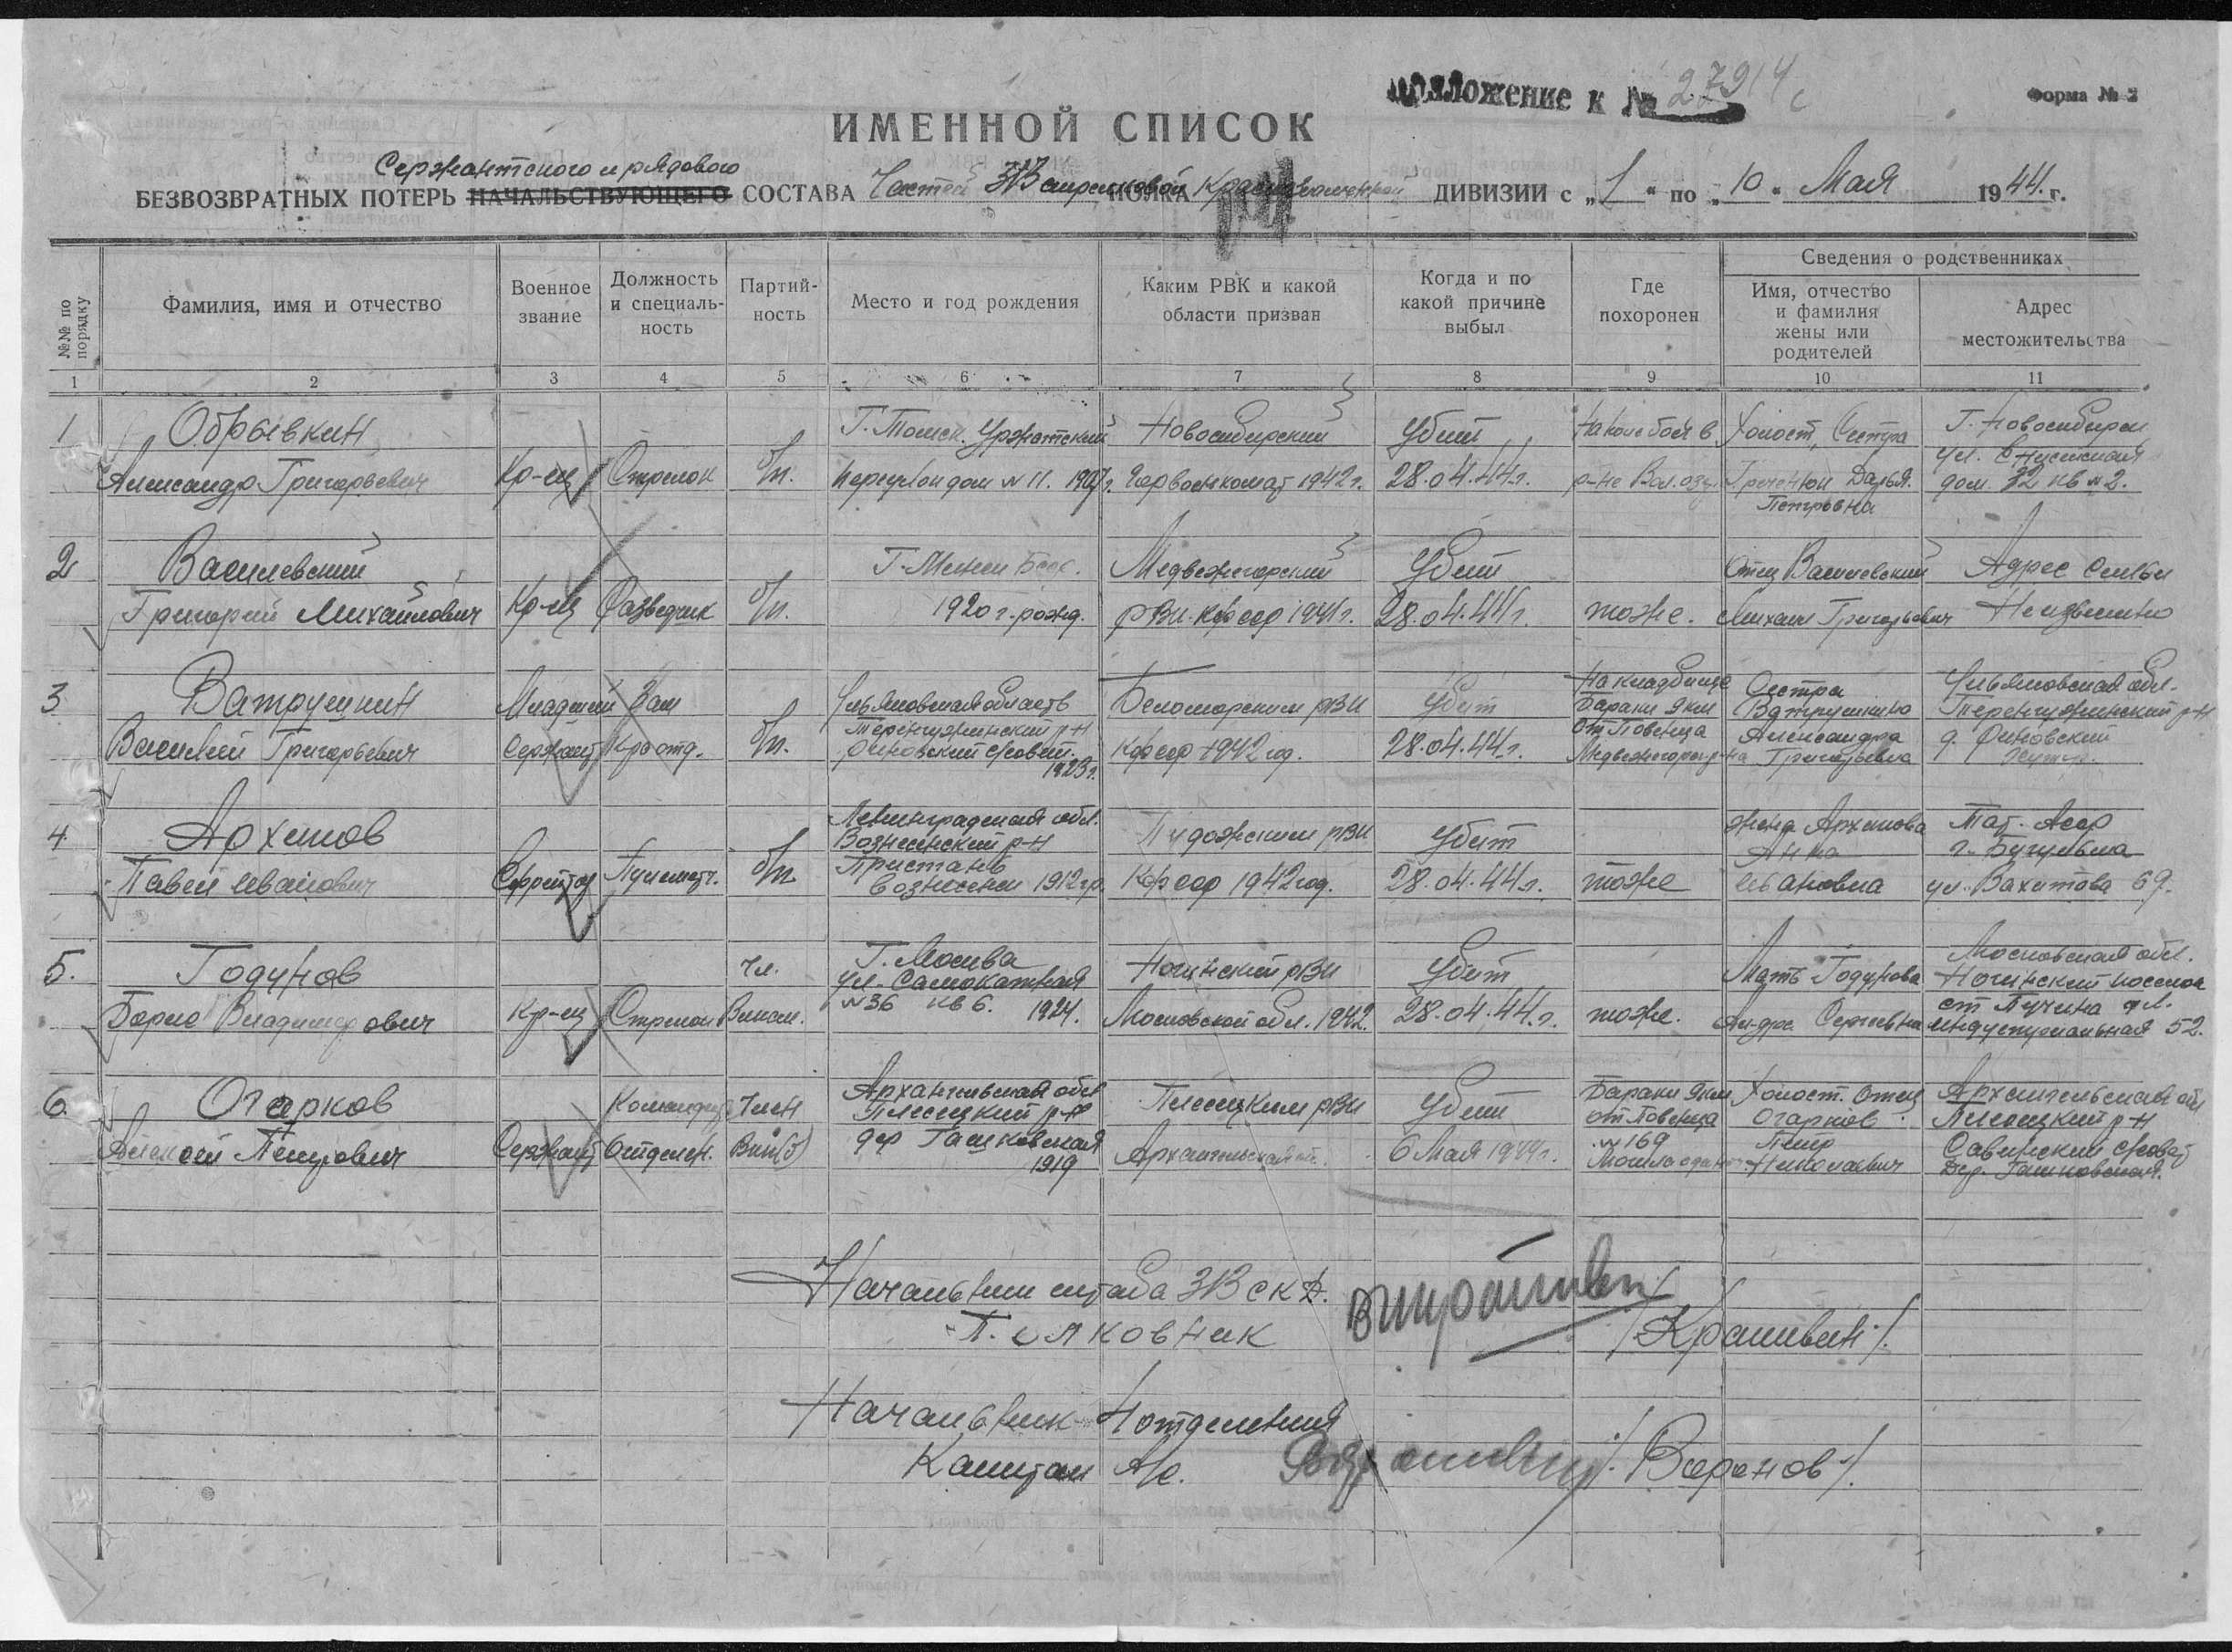 Приложение к № 27914с
Форма № 2
ИМЕННОЙ СПИСОК
Сержантского и рядового
БЕЗВОЗВРАТНЫХ ПОТЕРЬ НАЧАЛЬСТВУЮЩЕГО СОСТАВА Частей 313 стрелковой ПОЛКА Краснознаменной ДИВИЗИИ с „1“ по „10“ Мая 1944 г.
№№ по порядку
Фамилия, имя и отчество
Военное звание
Должность и специальность
Партийность
Место и год рождения
Каким РВК и какой области призван
Когда и по какой причине выбыл
Где похоронен
Сведения о родственниках
Имя, отчество и фамилия жены или родителей
Адрес местожительства
1 2 3 4 5 6 7 8 9 10 11
1 Обрывкин Г. Томск. Новосибирский убит На поле боя в Холост, Сестра Г. Новосибирск
Александр Григорьевич Кр-ец Стрелок б/п. дом № 11. Горвоенкомат 1942 г. 28.04.44 г. р-не Дарья. дом 32 кв № 2.
Петровна
2 Василевский Г. Минск Медвежегорский убит Отец Василевский Адрес семьи
Григорий Михайлович Кр-ец Разведчик б/п. 1920 г. рожд. РВК. Кфсср 1941 г. 28.04.44 г. тоже. Михаил Григорьевич Неизвестно
3 Ватрушкин Младший Зам Ульяновская область Беломорским РВК убит На кладбище Бараки 9 км Сестра Ватрушкина Ульяновская обл.
Василий Григорьевич Сержант отд. б/п. Теренгульский р-н 1923 г. Кфсср 1942 год. 28.04.44 г. от Повенца Александра Григорьевна Теренгульский р-н
4. Архипов Ленинградская обл. Вознесенский р-н Пудожским РВК убит жена Архипова Анна Тат. Асср г. Бугульма
Павел Иванович Ефрейтор Пулеметч. б/п Пристань Вознесенск 1912 гр. Кфсср 1942 год. 28.04.44 г. тоже Ивановна ул. Вахитова 69.
5. Годунов чл. Г. Москва ул. Самокатная Ногинский РВК убит Мать Годунова Московская обл. Ногинский
Борис Владимирович Кр-ец Стрелок Влксм. № 36 кв 6. 1924. Московской обл. 1942. 28.04.44 г. тоже. Сергеевна Индустриальная 52.
6. Огарков Командир Член Архангельская обл Плесецкий р-н Плесецким РВК убит Бараки 9 км от Повенца Холост. Отец Огарков Архангельская обл Плесецкий р-н
Алексей Петрович Сержант Отделен. Вкп(б) дер Гашковская 1919 Архангельская 6 Мая 1944 г. № 169 Петр Николаевич Савинский с/совет Дер. Гашковская.
Начальник штаба 313 скд.
Полковник /Крашивин/.
Начальник 4 отделения
Капитан А/с. /Воронов/.